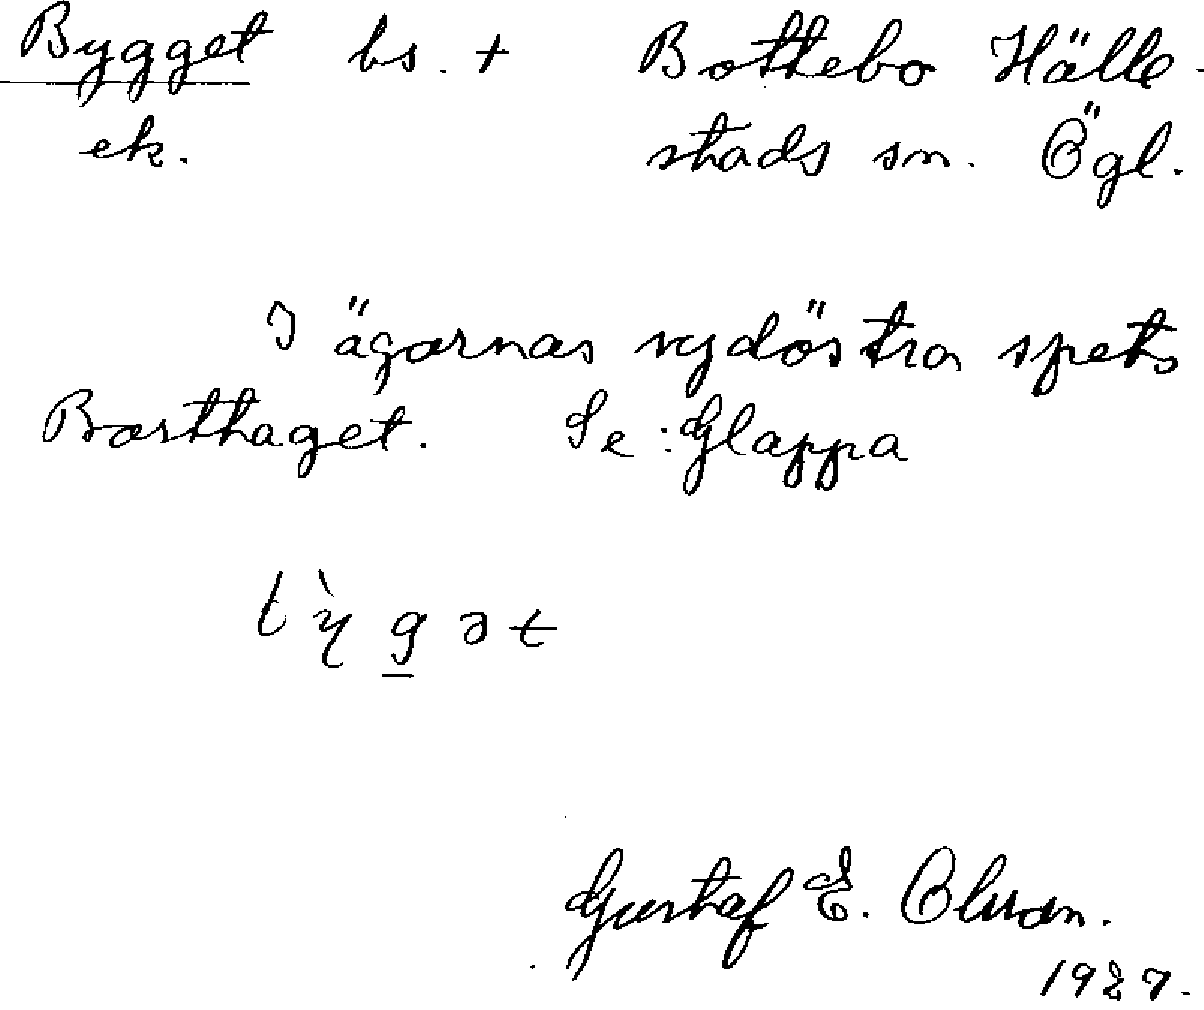 Bygget bs. + Bottebo Hälle-
ek. stads sn. Ögl.
I ägornas sydöstra spets
Borthaget. Se: Glappa
Gustaf E. Olsson.
1927.